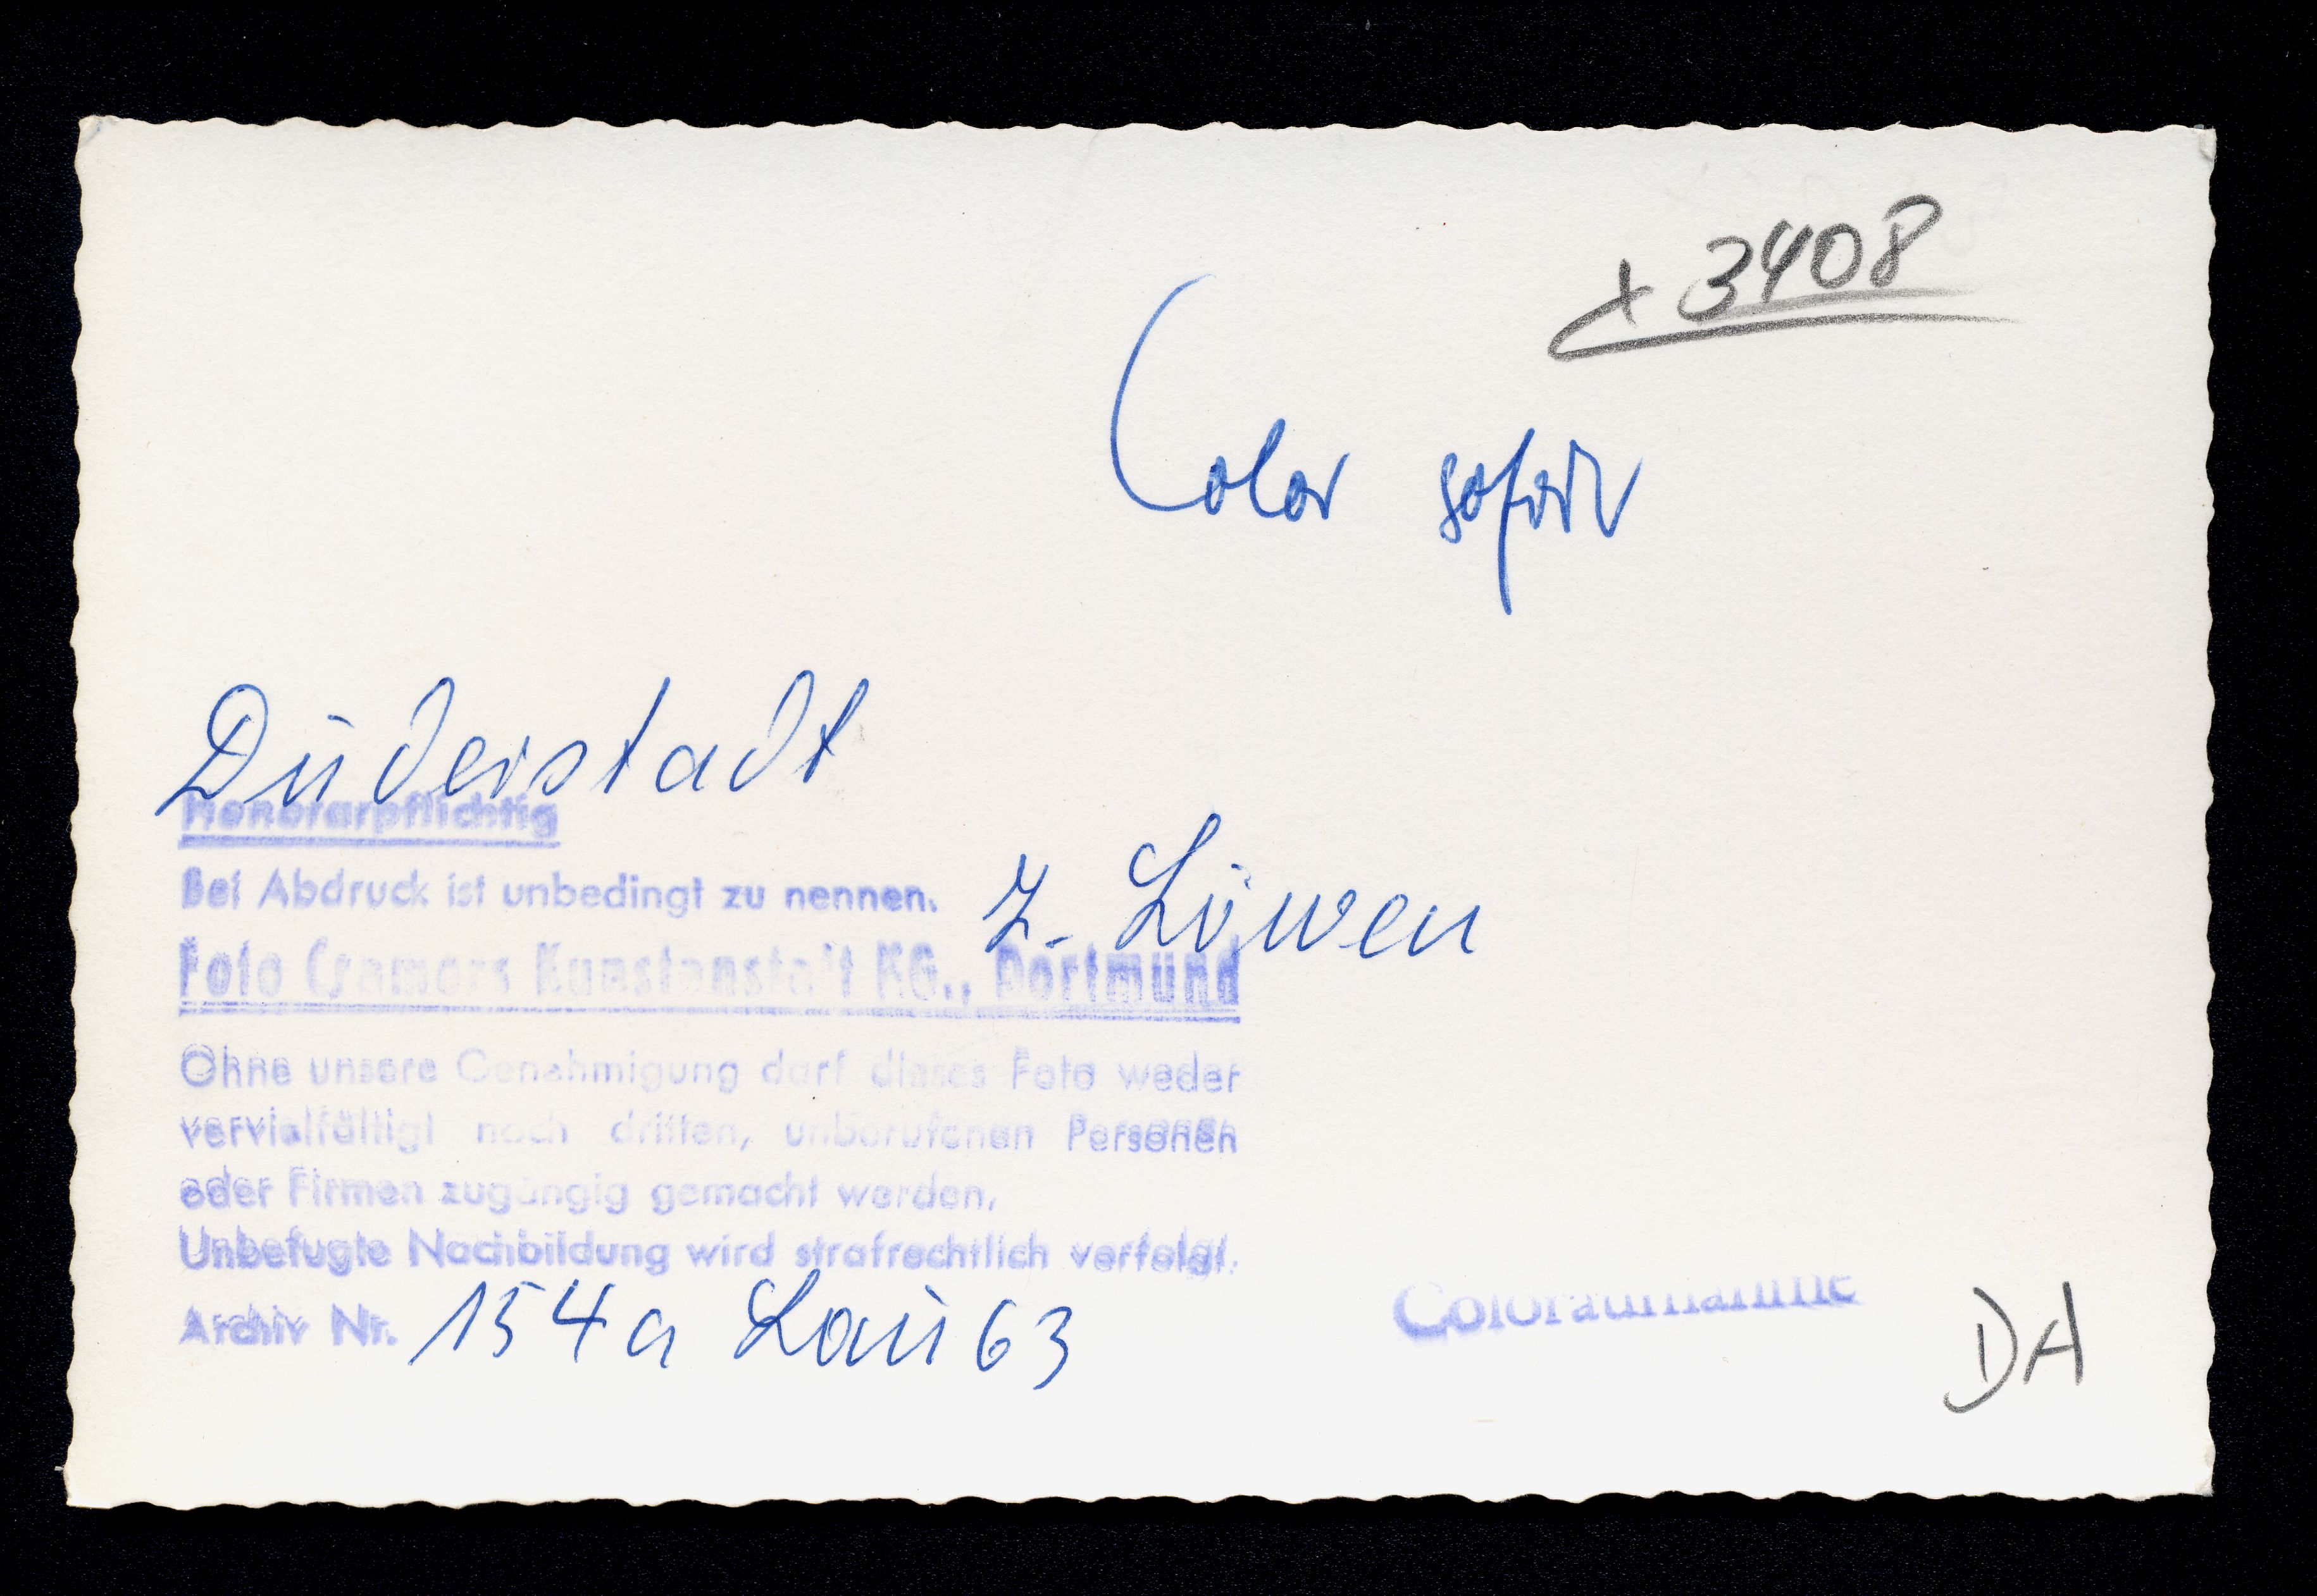 x 3408
Color sofort
Duderstadt
Honorarpflichtig
Bei Abdruck ist unbedingt zu nennen.
z. Löwen
Foto Cramers Kunstanstalt KG., Dortmund
Ohne unsere Genehmigung darf dieses Foto weder
vervielfältigt noch dritten, unberufenen Personen
oder Firmen zugängig gemacht werden.
Unbefugte Nachbildung wird strafrechtlich verfolgt.
Archiv Nr. 154a Lau 63
Coloraufnahme
DA